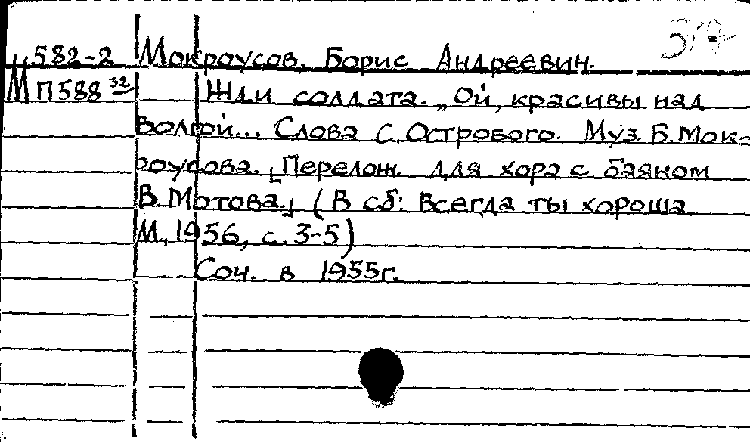 582-2 Мокроусов, Борис Андреевич.
М П588 32 Жди солдата. „Ой, красивы над
Волгой... Слова С. Острового. Муз. Б. Мок-
роусова. [Перелож. для хора с баяном
В. Мотова.] (В сб: Всегда ты хороша
М., 1956, с. 3-5)
Соч. в 1955г.